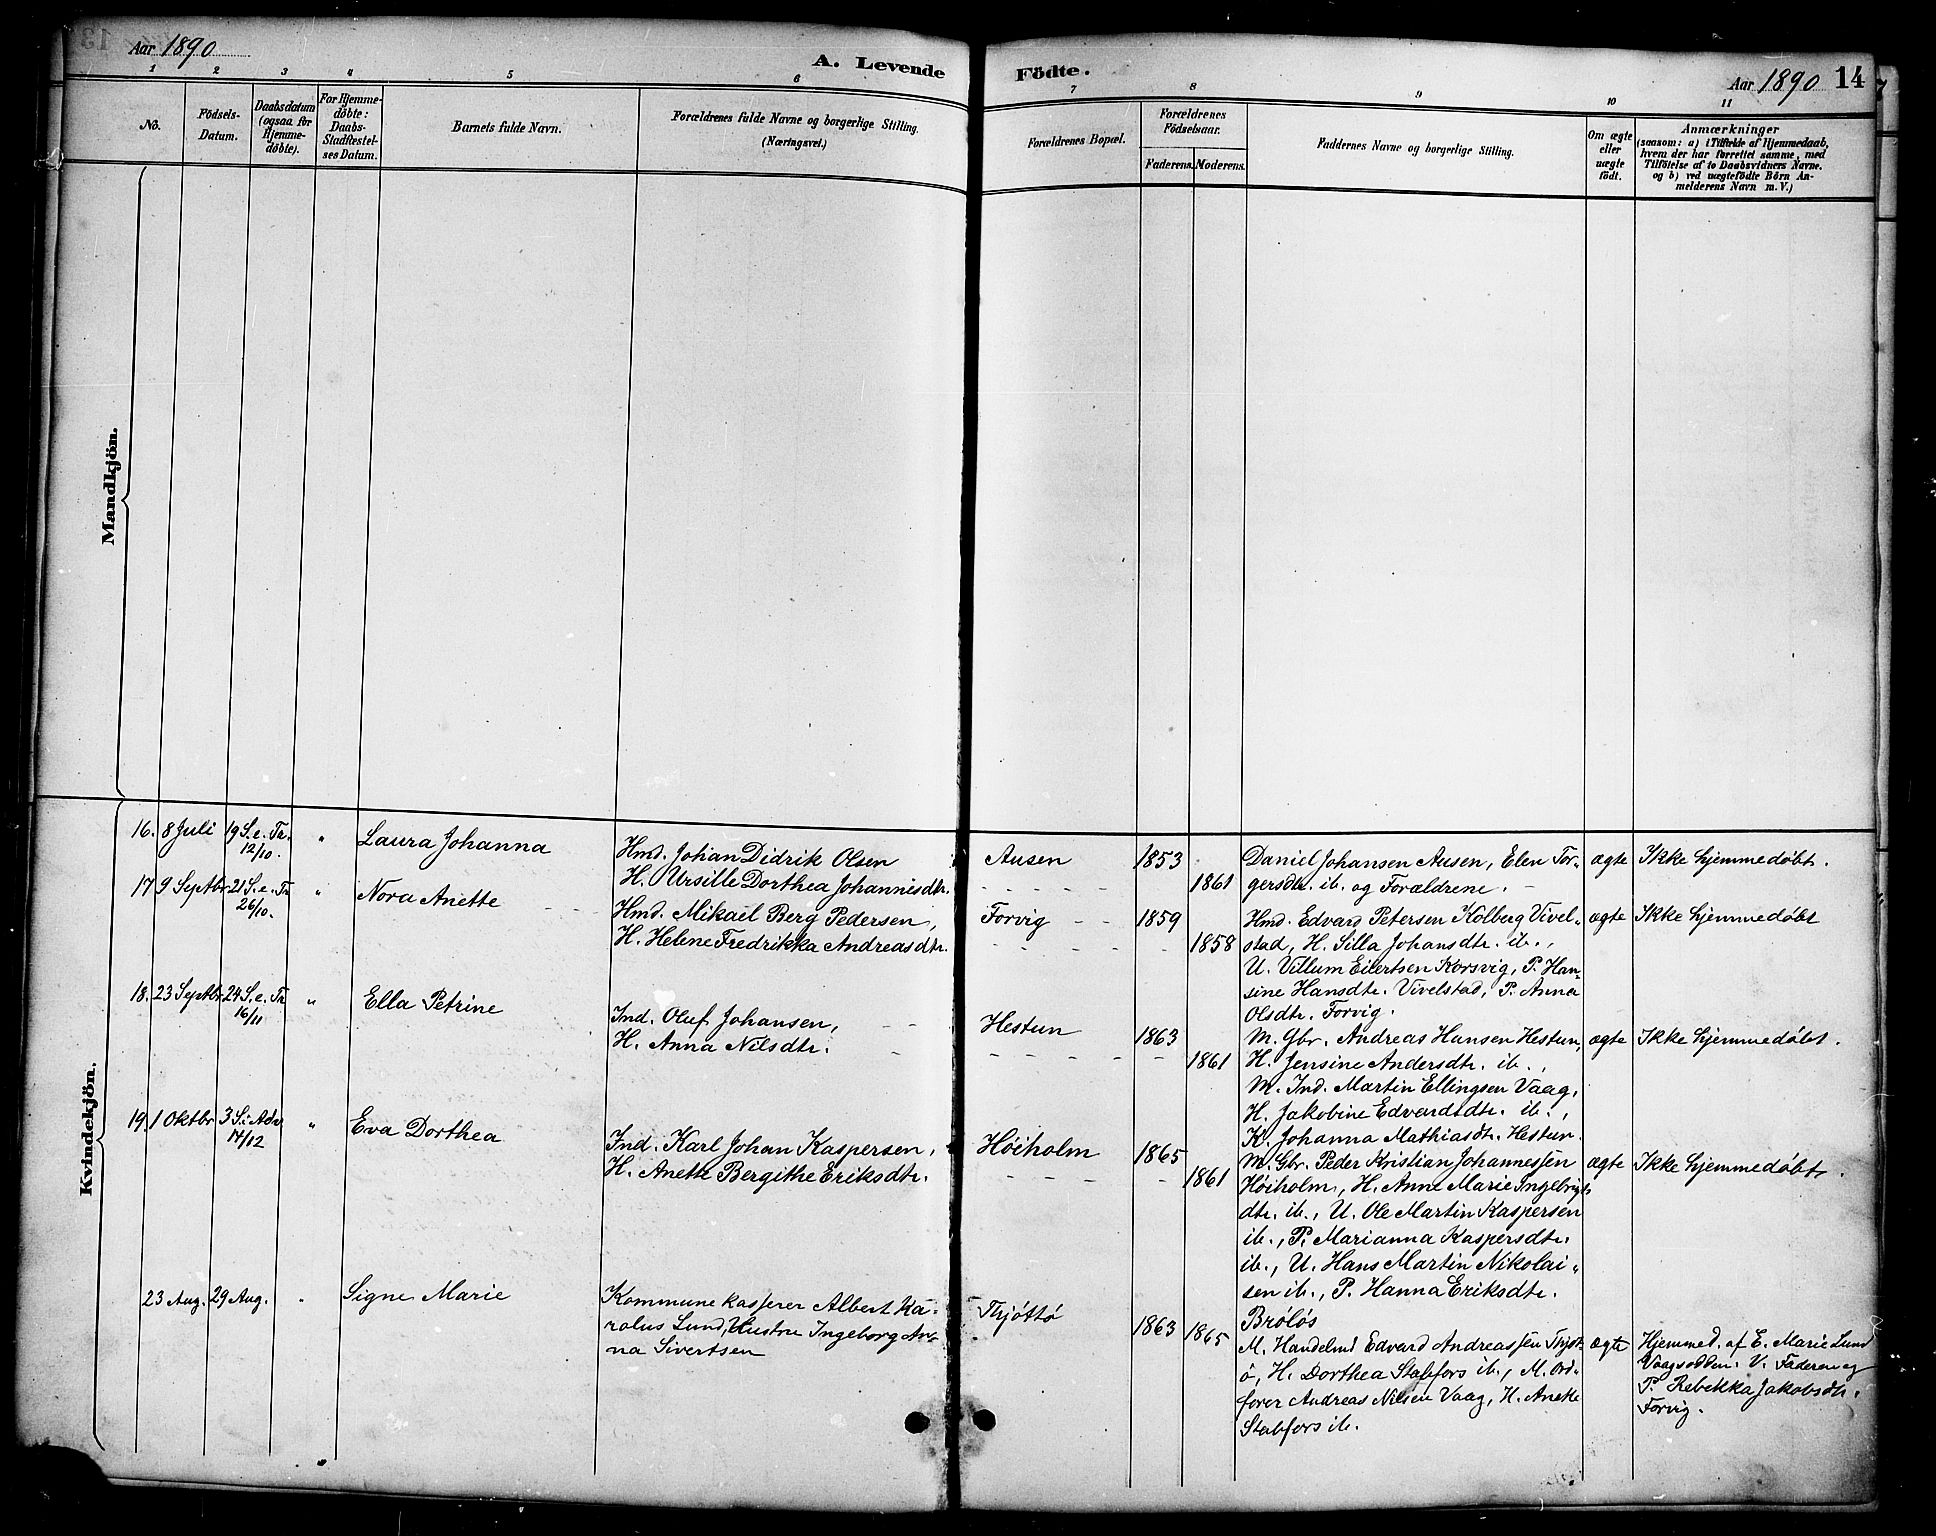 Aar 1890
A. Levende Födte.
Aar 1890 14
1 2 3 4 5 6 7 8 9 10 11
No.
Födsels-
Datum.
Daabsdatum
(ogsaa for
Hjemme-
döbte).
For Hjemme-
döbte:
Daabs-
Stadfestel-
ses Datum.
Barnets fulde Navn.
Forældrenes fulde Navne og borgerlige Stilling.
(Næringsvei.)
Forældrenes Bopæl.
Forældrenes
Födselsaar.
Faderens. Moderens.
Faddernes Navne og borgerlige Stilling.
Om ægte
eller
uægte
födt.
Anmærkninger
(saasom: a) i Tilfælde af Hjemmedaab,
hvem der har forrettet samme, med
Tilföielse af to Daabsvidners Navne.
og b) ved uægtefödte Börn An-
melderens Navn m. V.)
Mandkjön.
Kvindekjön.
16. 8 Juli 19 S. e. Tr.
12/10.
"
Laura Johanna
Hmd. Johan Didrik Olsen
H. Ursille Dorthea Johannisdtr.
Ausen
1853
1861
Daniel Johansen Ausen, Elen Tor-
gersdtr. ib. og Forældrene.
ægte
Ikke hjemmedøbt.
17. 9 Septbr. 21 S. e. Tr
26/10.
"
Nora Anette
Hmd. Mikael Berg Pedersen,
H. Helene Fredrikka Andreasdtr.
Forvig
1859
1858
Hmd. Edvard Petersen Kolberg Vivel-
stad, H. Silla Johansdtr. ib.,
U. Villum Eilertsen Korsvig, P. Han-
sine Hansdtr. Vivelstad, P. Anna
Olsdtr. Forvig.
ægte
Ikke hjemmedøbt
18. 23 Septbr. 24 S. e. Tr
16/11
"
Ella Petrine
Ind. Oluf Johansen,
H. Anna Nilsdtr.
Hestun
1863
1861
M. Gbr. Andreas Hansen Hestun,
H. Jensine Andersdtr. ib.,
M. Ind. Martin Ellingsen Vaag,
H. Jakobine Edvardtdtr. ib.,
K. Johanna Mathiasdtr. Hestun.
ægte
Ikke hjemmedøbt.
19. 1 Oktbr 3 S. i Adv
14/12
"
Eva Dorthea
Ind. Karl Johan Kaspersen,
H. Anette Bergithe Eriksdtr.
Høiholm
1865
1861
M. Gbr. Peder Kristian Johannessen
Høiholm, H. Anne Marie Ingebrigts
dtr. ib., U. Ole Martin Kaspersen
ib., P. Marianna Kaspersdtr.
ib., U. Hans Martin Nikolai-
sen ib., P. Hanna Eriksdtr.
Brøløs
ægte
Ikke hjemmedøbt.
23 Aug. 29 Aug.
"
Signe Marie
Kommunekasserer Albert Ka-
rolus Lund, Hustru Ingeborg An-
na Sivertsen
Thjøttø
1863 1865
M. Handelsmd Edvard Andreassen Thjøt-
ø, H. Dorthea Stabfors ib., M. Ord-
fører Andreas Nilsen Vaag, H. Anette
Stabfors ib.
ægte
Hjemmed. af E. Marie Lund
Vaagsodden. V. Faderen og
P. Rebekka Jakobsdtr.
Forvig.